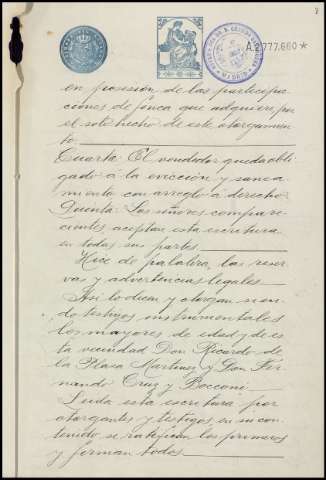 A2.777.660*
en posesión de las participa-
ciones de finca que adquiere por
el solo hecho de este otorgamien-
to.
Cuarta: El vendador queda obli-
gado á la evicción y sanea-
miento con arreglo á derecho
Quinta: Los señores compare-
cientes, aceptan esta escritura
en todas sus partes.
Hice de palabra, las reser-
vas y advertencias legales.
Así lo dicen y otorgan sien-
do testigos instrumentales
los mayores de edad y de es-
ta vecindad Don Ricardo de
la Plaza Martinez y Don Fer-
nando Cruz y Bocconi.
Leida esta escritura por
otorgantes y testigos, en su con-
tenido, se ratifican los primeros
y firman todos